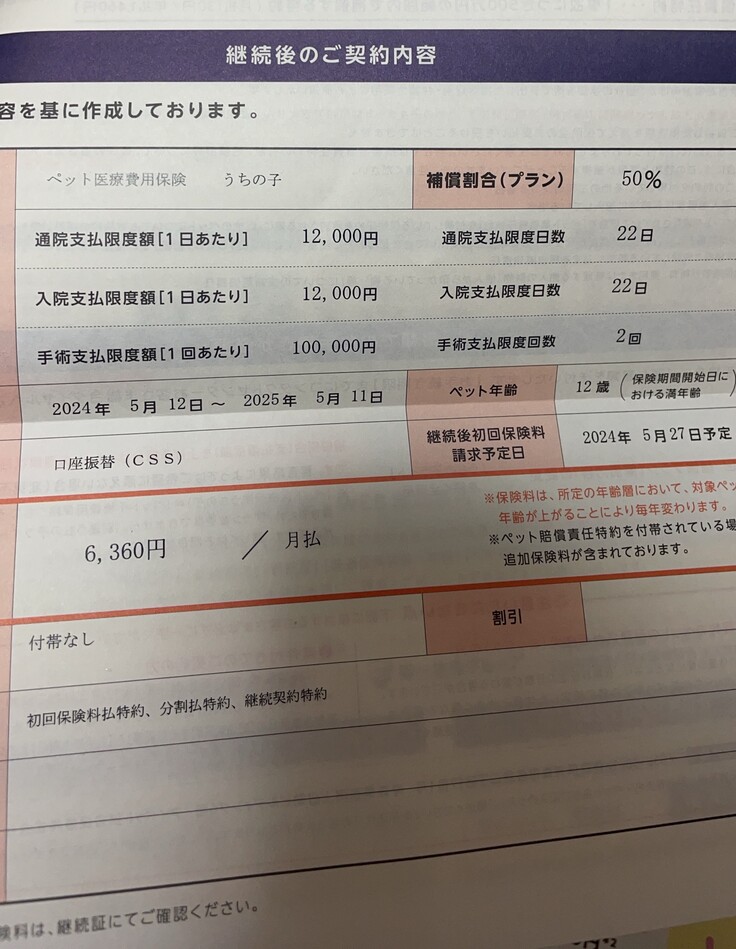 継続後のご契約内容
容を基に作成しております。
ペット医療費用保険 うちの子 補償割合(プラン) 50%
通院支払限度額[1日あたり] 12,000円 通院支払限度日数 22日
入院支払限度額[1日あたり] 12,000円 入院支払限度日数 22日
手術支払限度額[1回あたり] 100,000円 手術支払限度回数 2回
2024年 5月 12日 ~ 2025年 5月 11日 ペット年齢 12歳 (保険期間開始日に
おける満年齢
口座振替(CSS) 継続後初回保険料
請求予定日 2024年 5月27日予定
6,360円 / 月払
※保険料は、所定の年齢層において、対象ペッ
年齢が上がることにより毎年変わります。
※ペット賠償責任特約を付帯されている場
追加保険料が含まれております。
付帯なし 割引
初回保険料払特約、分割払特約、継続契約特約
険料は、継続証にてご確認ください。